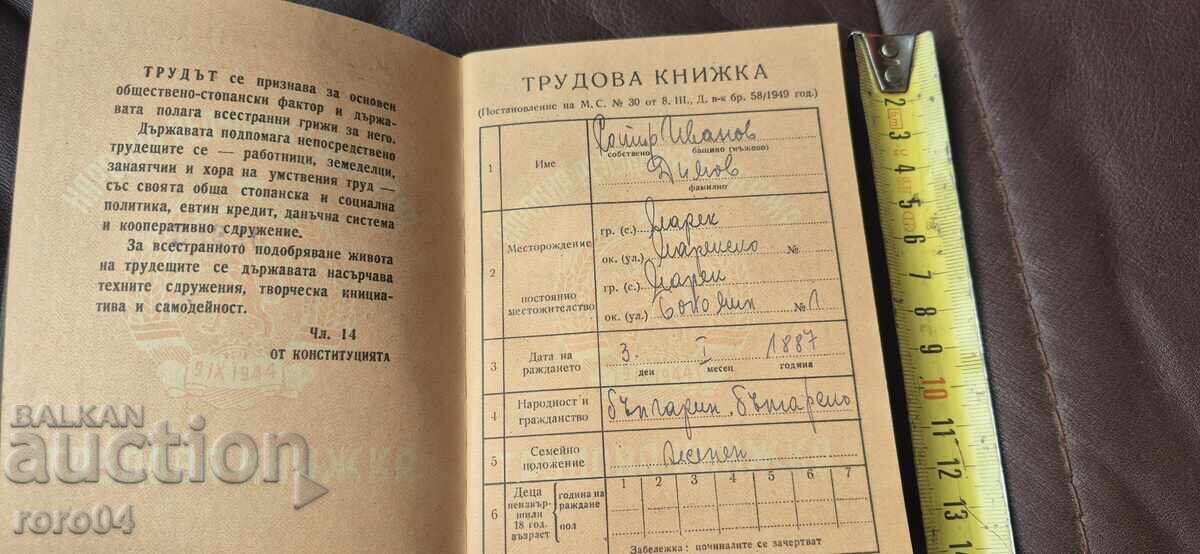 ТРУДЪТ се признава за основен
обществено-стопански фактор и държа-
вата полага всестранни грижи за него.
Държавата подпомага непосредствено
трудещите се — работници, земеделци,
занаятчии и хора на умствения труд —
със своята обща стопанска и социална
политика, евтин кредит, данъчна система
и кооперативно сдружение.
За всестранното подобряване живота
на трудещите се държавата насърчава
техните сдружения, творческа инициа-
тива и самодейност.
Чл. 14
ОТ КОНСТИТУЦИЯТА
9 IX 1944
BALKAN
auction
roro04
ТРУДОВА КНИЖКА
(Постановление на М. С. № 30 от 8. III., Д. в-к бр. 58/1949 год.)
1 Име Иванов
собствено бащино (мъжово)
Димов
фамилно
2 Месторождение гр. (с.) Марек
ок. (ул.) №
постоянно местожителство гр. (с.) Марек
ок. (ул.) № 1
3 Дата на раждането 3. I 1887
ден месец година
4 Народност и гражданство българин, българско
5 Семейно положение женен
6 Деца ненавършили 18 год. възраст година на раждане пол 1 2 3 4 5 6 7
Забележка: починалите се зачертват
2 3 4 5 6 7 8 9 10 11 12 13 14